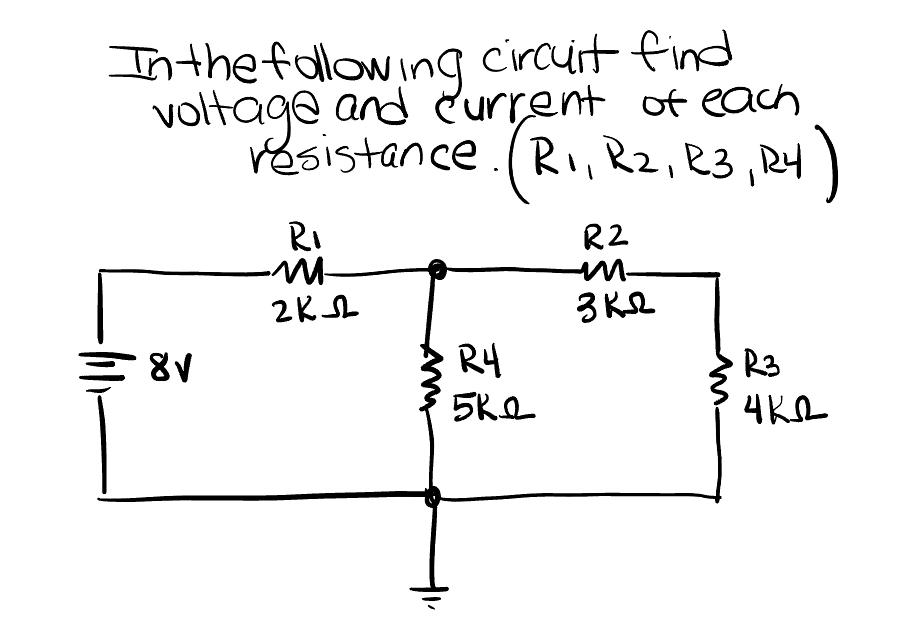 In the following circuit find
voltage and current of each
resistance. (R1, R2, R3, R4)
R1
2KΩ
R2
3KΩ
8V
R4
5KΩ
R3
4KΩ